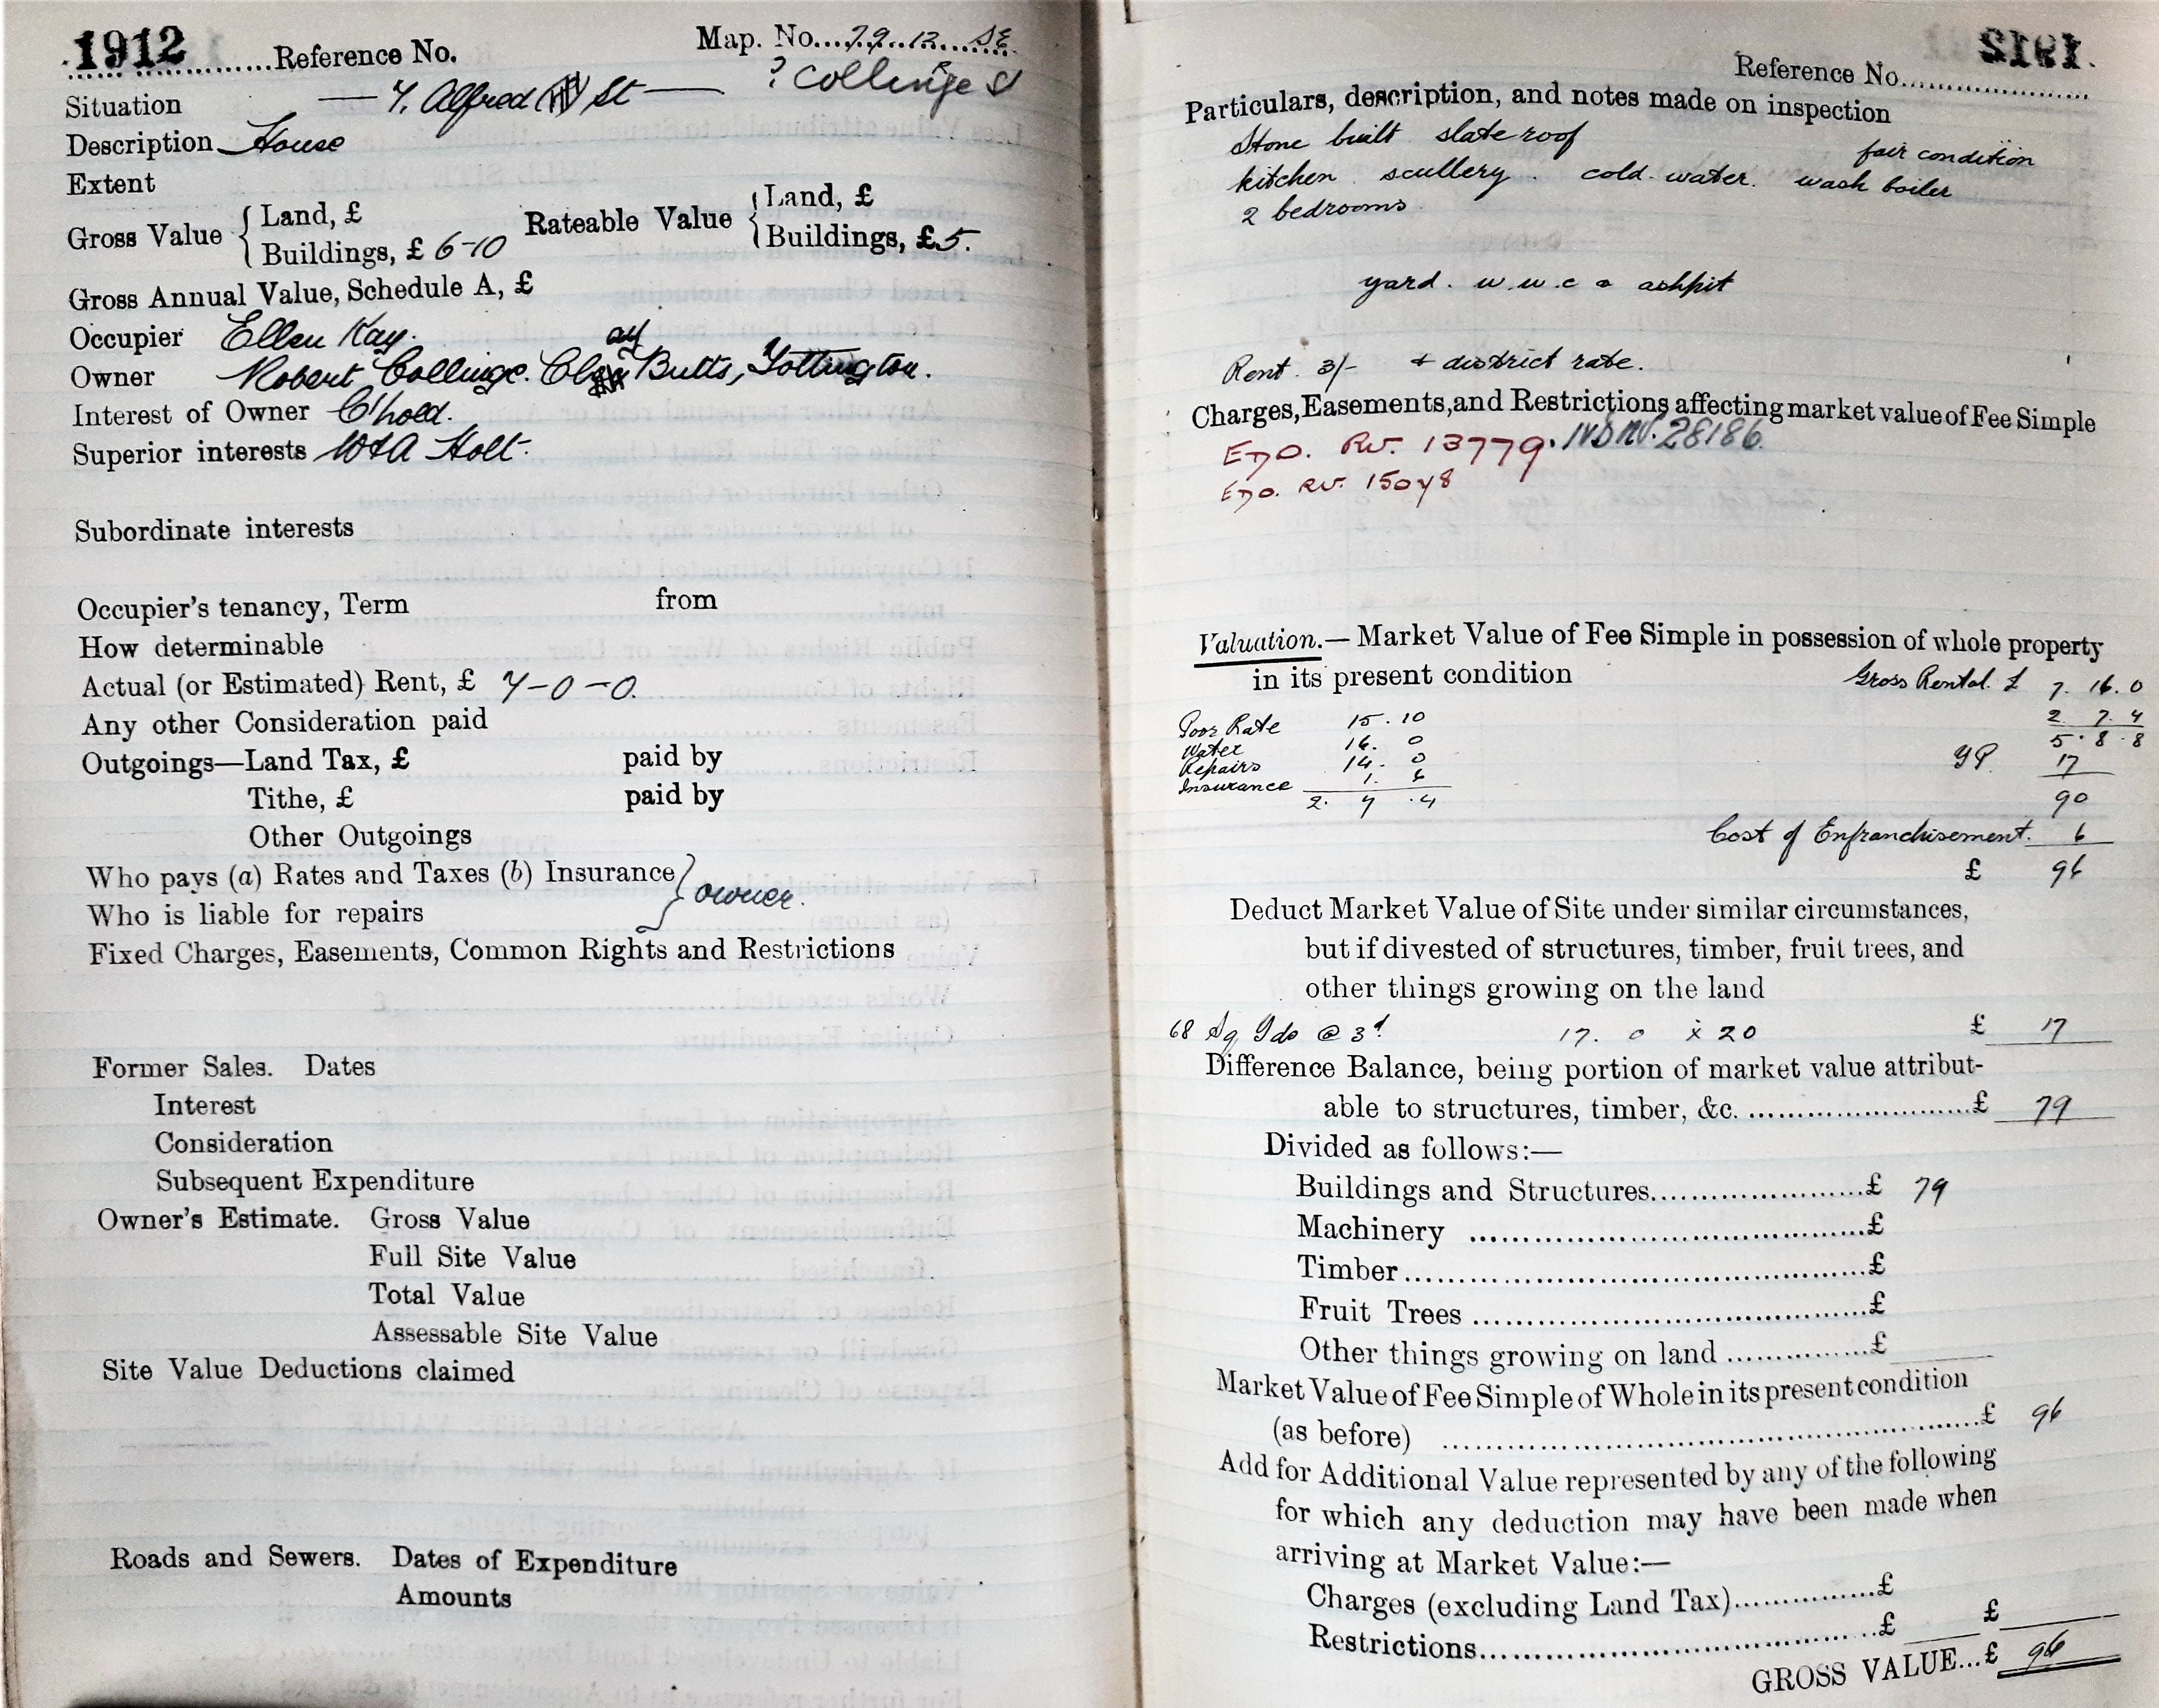 1912 Reference No. Map. No. 79.12 SE
Situation — 7, Alfred St — ? Collinge St
Description House
Extent
Gross Value { Land, £ Rateable Value { Land, £
Buildings, £ 6-10 Buildings, £5.
Gross Annual Value, Schedule A, £
Occupier Ellen Kay.
Owner Robert Collinge. Clay Butts, Tottington.
Interest of Owner C'hold.
Superior interests W & A Holt.
Subordinate interests
Occupier's tenancy, Term from
How determinable
Actual (or Estimated) Rent, £ 7-0-0.
Any other Consideration paid
Outgoings—Land Tax, £ paid by
Tithe, £ paid by
Other Outgoings
Who pays (a) Rates and Taxes (b) Insurance } owner.
Who is liable for repairs
Fixed Charges, Easements, Common Rights and Restrictions
Former Sales. Dates
Interest
Consideration
Subsequent Expenditure
Owner's Estimate. Gross Value
Full Site Value
Total Value
Assessable Site Value
Site Value Deductions claimed
Roads and Sewers. Dates of Expenditure
Amounts
Reference No. 1912
Particulars, description, and notes made on inspection
Stone built slate roof fair condition
kitchen scullery. cold water. wash boiler
2 bedrooms
yard. w.w.c & ashpit
Rent. 3/- & district rate.
Charges, Easements, and Restrictions affecting market value of Fee Simple
13779. 28186.
15078
Valuation.— Market Value of Fee Simple in possession of whole property
in its present condition Gross Rental. £ 7. 16. 0
Poor Rate 15. 10 2. 7. 4
Water 16. 0 5. 8. 8
Repairs 14. 0 YP. 17
Insurance 1. 6 90
2. 7. 4
Cost of Enfranchisement. 6
£ 96
Deduct Market Value of Site under similar circumstances,
but if divested of structures, timber, fruit trees, and
other things growing on the land
68 Sq Yds @ 3d 17. 0 x 20 £ 17
Difference Balance, being portion of market value attribut-
able to structures, timber, &c. £ 79
Divided as follows:—
Buildings and Structures £ 79
Machinery £
Timber £
Fruit Trees £
Other things growing on land £
Market Value of Fee Simple of Whole in its present condition
(as before) £ 96
Add for Additional Value represented by any of the following
for which any deduction may have been made when
arriving at Market Value:—
Charges (excluding Land Tax) £
Restrictions £ £
GROSS VALUE...£ 96